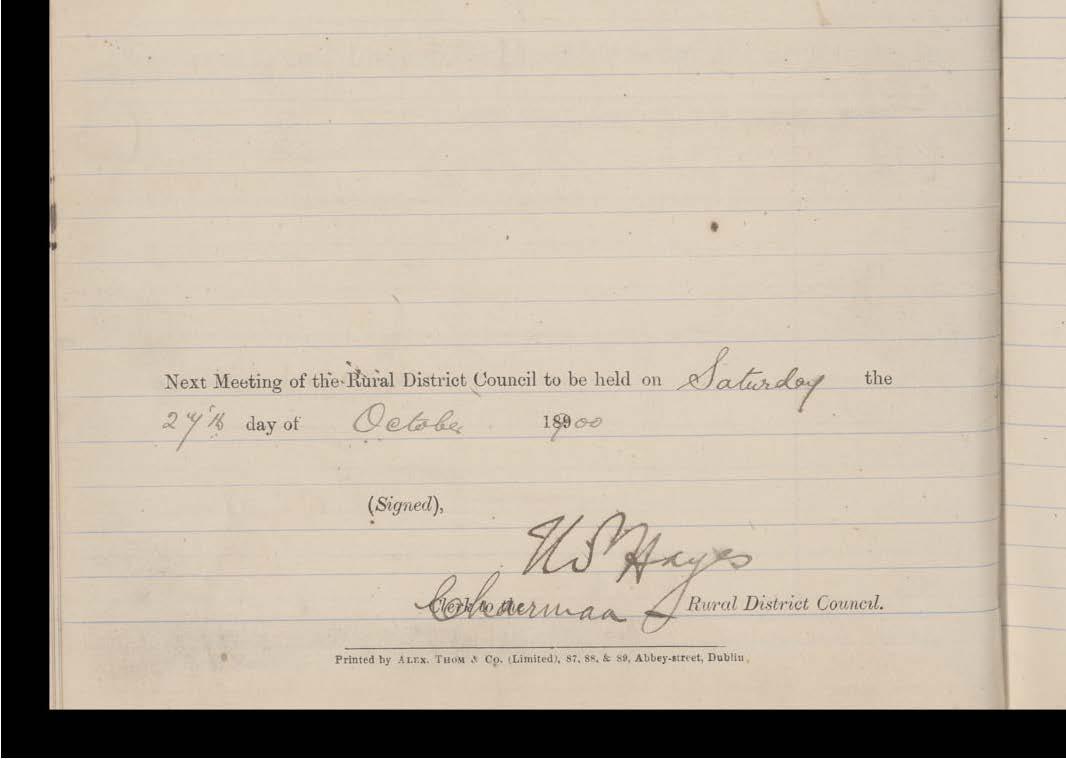 Next Meeting of the Rural District Council to be held on Saturday the
27th day of October 1900
(Signed),
Hayes
Chairman Rural District Council.
Printed by ALEX. THOM & Co. (Limited), 87, 88, & 89, Abbey-street, Dublin.